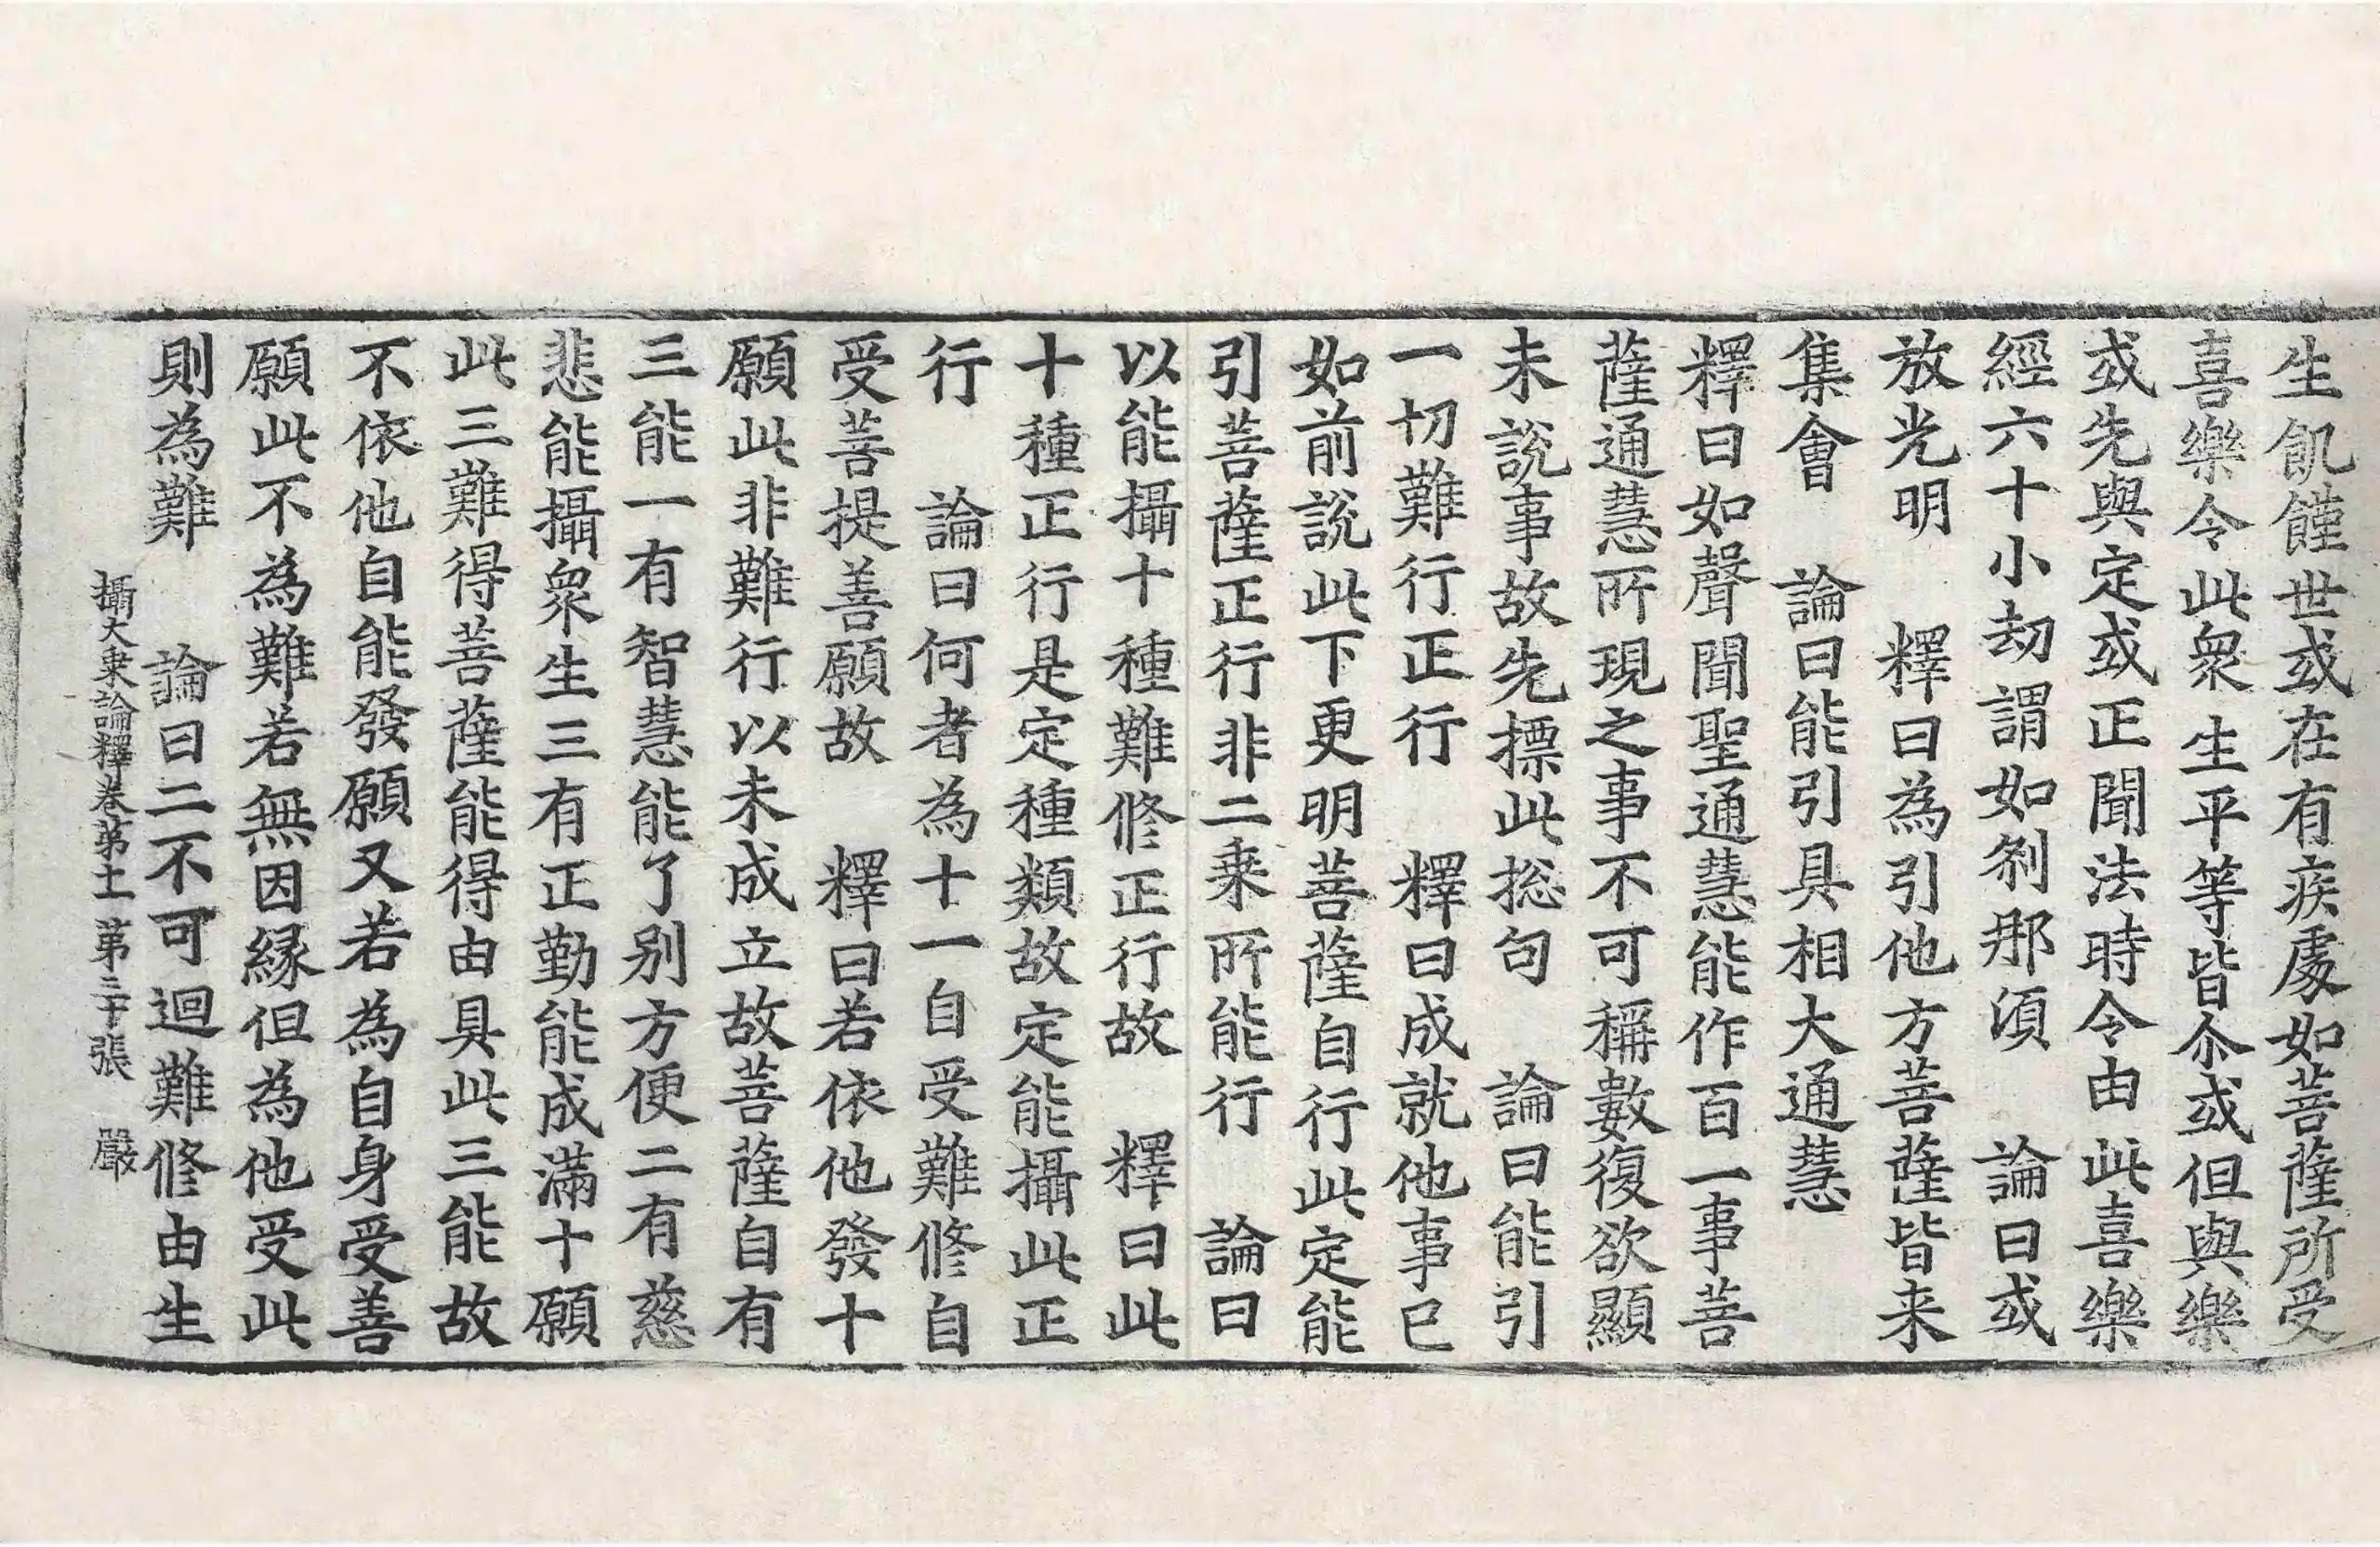 生飢饉世或在有疾處如菩薩所受
喜樂令此衆生平等皆尒或但與樂
或先與定或正聞法時令由此喜樂
經六十小劫謂如刹那湏　論曰或
放光明　釋曰為引他方菩薩皆来
集會　論曰能引具相大通慧
釋曰如聲聞聖通慧能作百一事菩
薩通慧所現之事不可稱數復欲顯
未說事故先摽此捴句　論曰能引
一切難行正行　釋曰成就他事已
如前說此下更明菩薩自行此定能
引菩薩正行非二乗所能行　論曰
以能攝十種難修正行故　釋曰此
十種正行是定種類故定能攝此正
行　論曰何者為十一自受難修自
受菩提善願故　釋曰若依他發十
願此非難行以未成立故菩薩自有
三能一有智慧能了别方便二有慈
悲能攝衆生三有正勤能成滿十願
此三難得菩薩能得由具此三能故
不依他自能發願又若為自身受善
願此不為難若無因縁但為他受此
則為難　論曰二不可迴難修由生
攝大乗論釋卷第十一　第二十張　嚴